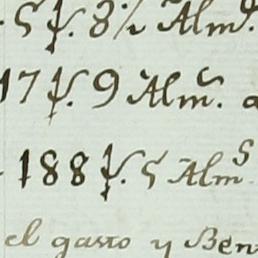 5 f. 8½ Alm.
17 f. 9 Alm.s a
188 f. 5 Alm.s
el gasto y Ben